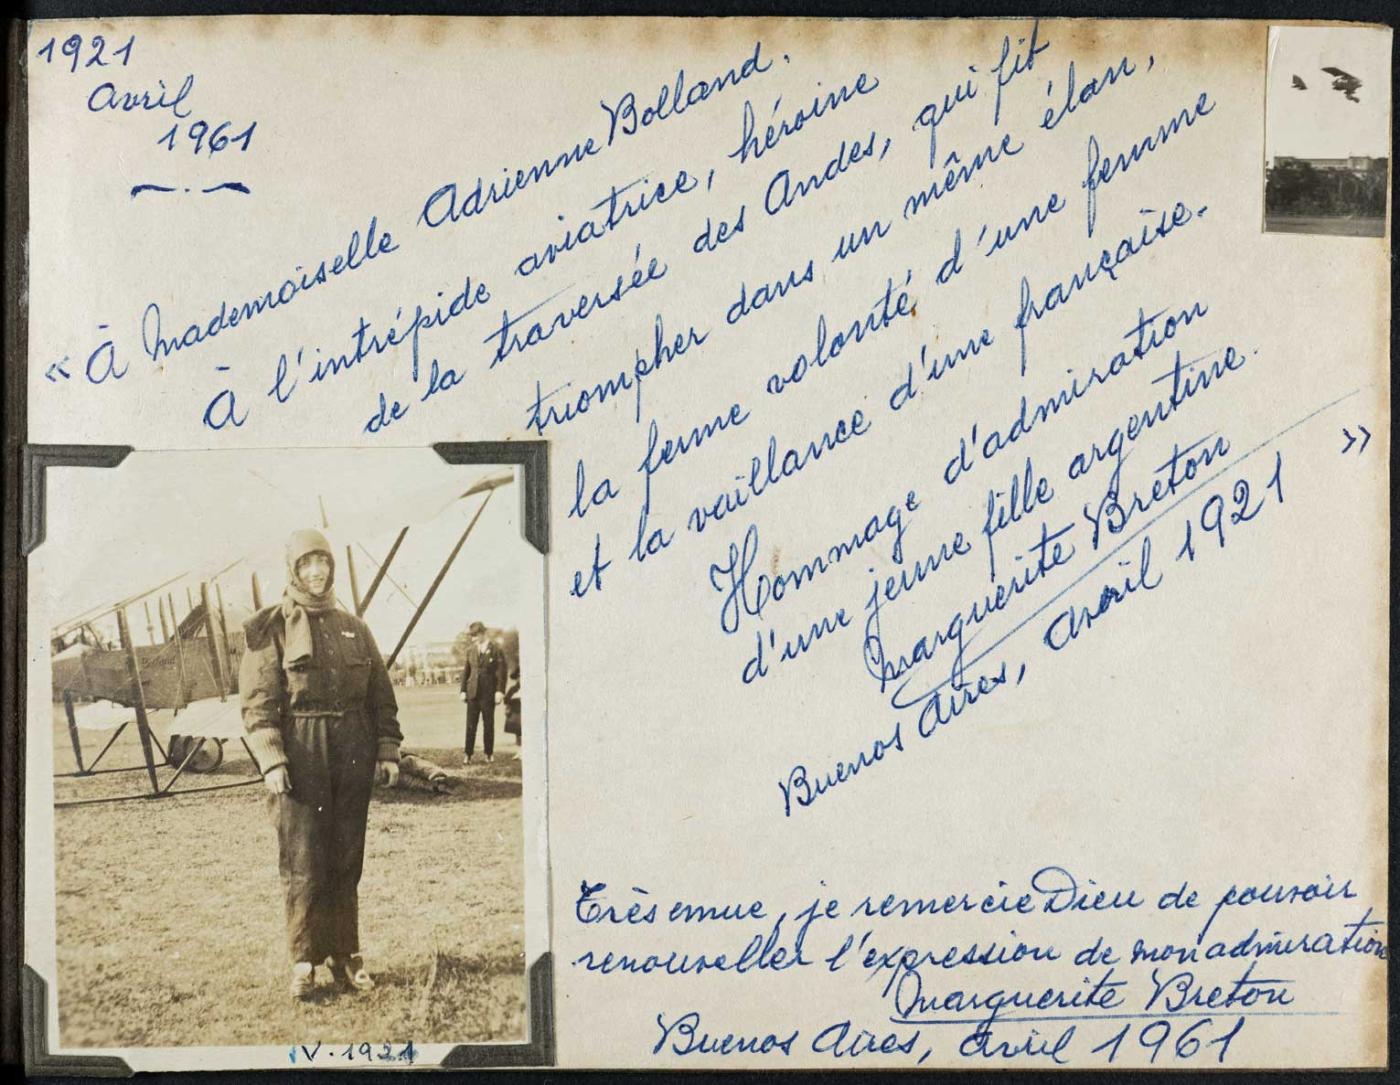 1921
Avril
1961
« À Mademoiselle Adrienne Bolland.
À l'intrépide aviatrice, héroine
de la traversée des Andes, qui fit
triompher dans un même élan,
la ferme volonté d'une femme
et la vaillance d'une française.
Hommage d'admiration
d'une jeune fille argentine.
Marguerite Breton »
Buenos Aires, Avril 1921
Bolland
IV.1921
Très emue, je remercie Dieu de pouvoir
renouveller l'expression de mon admiration
Marguerite Breton
Buenos Aires, avril 1961